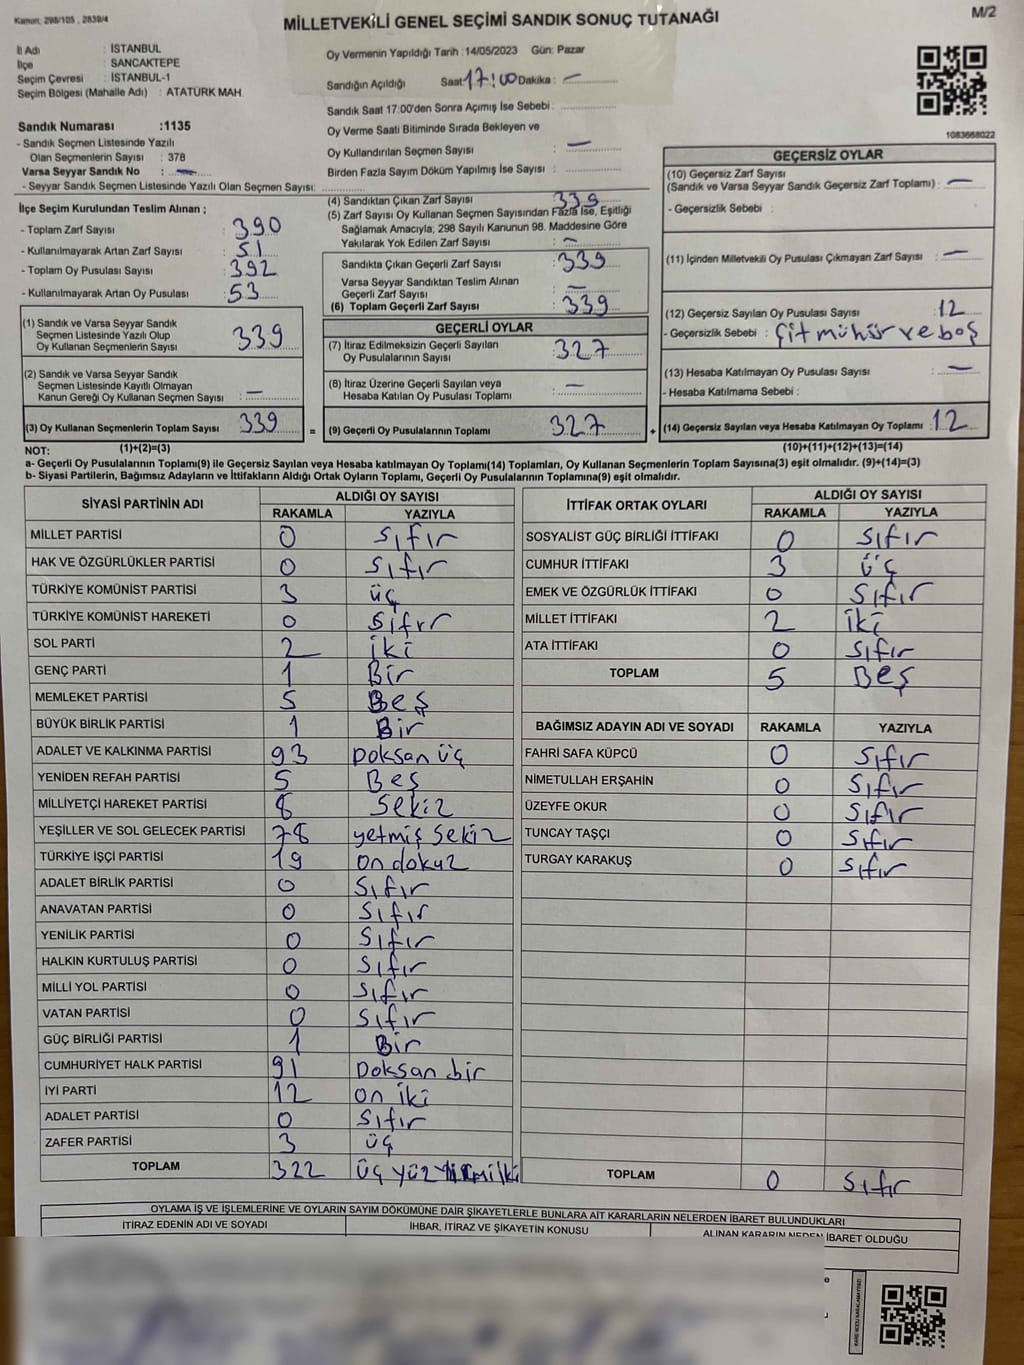 Kanun; 298/105 , 2839/4
MİLLETVEKİLİ GENEL SEÇİMİ SANDIK SONUÇ TUTANAĞI
M/2
İl Adı : İSTANBUL
İlçe : SANCAKTEPE
Seçim Çevresi : İSTANBUL-1
Seçim Bölgesi (Mahalle Adı) : ATATÜRK MAH.
Oy Vermenin Yapıldığı Tarih :14/05/2023 Gün: Pazar
Sandığın Açıldığı Saat 17:00 Dakika : —
Sandık Saat 17:00'den Sonra Açımış İse Sebebi :
Oy Verme Saati Bitiminde Sırada Bekleyen ve
Oy Kullandırılan Seçmen Sayısı : —
Birden Fazla Sayım Döküm Yapılmış İse Sayısı :
1083668022
Sandık Numarası :1135
- Sandık Seçmen Listesinde Yazılı
Olan Seçmenlerin Sayısı : 378
Varsa Seyyar Sandık No : —
- Seyyar Sandık Seçmen Listesinde Yazılı Olan Seçmen Sayısı:
İlçe Seçim Kurulundan Teslim Alınan ;
- Toplam Zarf Sayısı : 390
- Kullanılmayarak Artan Zarf Sayısı : 51
- Toplam Oy Pusulası Sayısı : 392
- Kullanılmayarak Artan Oy Pusulası : 53
(1) Sandık ve Varsa Seyyar Sandık
Seçmen Listesinde Yazılı Olup
Oy Kullanan Seçmenlerin Sayısı : 339
(2) Sandık ve Varsa Seyyar Sandık
Seçmen Listesinde Kayıtlı Olmayan
Kanun Gereği Oy Kullanan Seçmen Sayısı : —
(3) Oy Kullanan Seçmenlerin Toplam Sayısı : 339 =
(4) Sandıktan Çıkan Zarf Sayısı : 339
(5) Zarf Sayısı Oy Kullanan Seçmen Sayısından Fazla İse, Eşitliği
Sağlamak Amacıyla; 298 Sayılı Kanunun 98. Maddesine Göre
Yakılarak Yok Edilen Zarf Sayısı : —
Sandıkta Çıkan Geçerli Zarf Sayısı : 339
Varsa Seyyar Sandıktan Teslim Alınan
Geçerli Zarf Sayısı : —
(6) Toplam Geçerli Zarf Sayısı : 339
GEÇERLİ OYLAR
(7) İtiraz Edilmeksizin Geçerli Sayılan
Oy Pusulalarının Sayısı : 327
(8) İtiraz Üzerine Geçerli Sayılan veya
Hesaba Katılan Oy Pusulası Toplamı : —
(9) Geçerli Oy Pusulalarının Toplamı : 327 +
GEÇERSİZ OYLAR
(10) Geçersiz Zarf Sayısı
(Sandık ve Varsa Seyyar Sandık Geçersiz Zarf Toplamı) : —
- Geçersizlik Sebebi :
(11) İçinden Milletvekili Oy Pusulası Çıkmayan Zarf Sayısı : —
(12) Geçersiz Sayılan Oy Pusulası Sayısı : 12
- Geçersizlik Sebebi : Çit mühür ve boş
(13) Hesaba Katılmayan Oy Pusulası Sayısı : —
- Hesaba Katılmama Sebebi :
(14) Geçersiz Sayılan veya Hesaba Katılmayan Oy Toplamı : 12
NOT: (1)+(2)=(3) (10)+(11)+(12)+(13)=(14)
a- Geçerli Oy Pusulalarının Toplamı(9) ile Geçersiz Sayılan veya Hesaba katılmayan Oy Toplamı(14) Toplamları, Oy Kullanan Seçmenlerin Toplam Sayısına(3) eşit olmalıdır. (9)+(14)=(3)
b- Siyasi Partilerin, Bağımsız Adayların ve İttifakların Aldığı Ortak Oyların Toplamı, Geçerli Oy Pusulalarının Toplamına(9) eşit olmalıdır.
SİYASİ PARTİNİN ADI ALDIĞI OY SAYISI
RAKAMLA YAZIYLA
MİLLET PARTİSİ 0 Sıfır
HAK VE ÖZGÜRLÜKLER PARTİSİ 0 Sıfır
TÜRKİYE KOMÜNİST PARTİSİ 3 üç
TÜRKİYE KOMÜNİST HAREKETİ 0 Sıfır
SOL PARTİ 2 iki
GENÇ PARTİ 1 Bir
MEMLEKET PARTİSİ 5 Beş
BÜYÜK BİRLİK PARTİSİ 1 Bir
ADALET VE KALKINMA PARTİSİ 93 Doksan üç
YENİDEN REFAH PARTİSİ 5 Beş
MİLLİYETÇİ HAREKET PARTİSİ 8 Sekiz
YEŞİLLER VE SOL GELECEK PARTİSİ 78 yetmiş sekiz
TÜRKİYE İŞÇİ PARTİSİ 19 on dokuz
ADALET BİRLİK PARTİSİ 0 Sıfır
ANAVATAN PARTİSİ 0 Sıfır
YENİLİK PARTİSİ 0 Sıfır
HALKIN KURTULUŞ PARTİSİ 0 Sıfır
MİLLİ YOL PARTİSİ 0 Sıfır
VATAN PARTİSİ 0 Sıfır
GÜÇ BİRLİĞİ PARTİSİ 1 Bir
CUMHURİYET HALK PARTİSİ 91 Doksan bir
İYİ PARTİ 12 on iki
ADALET PARTİSİ 0 Sıfır
ZAFER PARTİSİ 3 üç
TOPLAM 322 üç yüz
İTTİFAK ORTAK OYLARI ALDIĞI OY SAYISI
RAKAMLA YAZIYLA
SOSYALİST GÜÇ BİRLİĞİ İTTİFAKI 0 Sıfır
CUMHUR İTTİFAKI 3 üç
EMEK VE ÖZGÜRLÜK İTTİFAKI 0 Sıfır
MİLLET İTTİFAKI 2 iki
ATA İTTİFAKI 0 Sıfır
TOPLAM 5 Beş
BAĞIMSIZ ADAYIN ADI VE SOYADI RAKAMLA YAZIYLA
FAHRİ SAFA KÜPCÜ 0 Sıfır
NİMETULLAH ERŞAHİN 0 Sıfır
ÜZEYFE OKUR 0 Sıfır
TUNCAY TAŞÇI 0 Sıfır
TURGAY KARAKUŞ 0 Sıfır
TOPLAM 0 Sıfır
OYLAMA İŞ VE İŞLEMLERİNE VE OYLARIN SAYIM DÖKÜMÜNE DAİR ŞİKAYETLERLE BUNLARA AİT KARARLARIN NELERDEN İBARET BULUNDUKLARI
İTİRAZ EDENİN ADI VE SOYADI İHBAR, İTİRAZ VE ŞİKAYETİN KONUSU ALINAN KARARIN NEDEN İBARET OLDUĞU